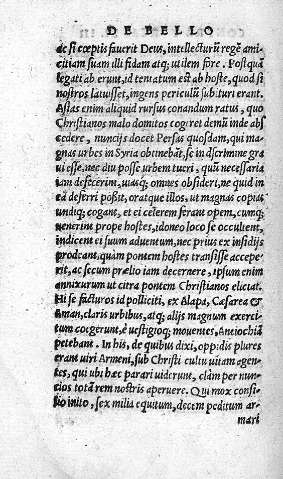 DE BELLO
ac si cœptis fauerit Deus, intellecturũ regẽ ami⸗
citiam suam illi fidam atq; utilem fore. Postquã
legati abierunt, id tentatum est ab hoste, quod si
nostros latuisset, ingens periculũ subituri erant.
Asias enim aliquid rursus conandum ratus, quo
Christianos malo domitos cogeret demũ inde abs
cedere, nuncijs docet Persas quosdam, qui ma⸗
gnas urbes in Syria obtinebãt, se in discrimine gra
ui esse, nec diu posse urbem tueri, quũ necessaria
iam defecerint, uiasq; omnes obsideri, ne quid in
ea deferri possit, oratque illos, ut magnas copias
undiq; cogant, et ei celerem ferant opem, cumq;
uenerint prope hostes, idoneo loco se occulient,
indicent ei suum aduentum, nec prius ex insidijs
prodeant, quàm pontem hostes transisse accepe⸗
rit, ac secum prælio iam decernere, ipsum enim
annixurum ut citra pontem Christianos eliciat.
Hi se facturos id polliciti, ex Alapa, Cæsarea &
Aman, claris urbibus, atq; alijs magnum exerci⸗
tum coegerunt, è uestigioq; mouentes, Antiochiã
petebant. In his, de quibus dixi, oppidis plures
erant uiri Armeni, sub Christi cultu uitam agen⸗
tes, qui ubi hæc parari uiderunt, clàm per nun⸗
cios totã rem nostris aperuere. Qui mox consi⸗
lio inito, sex milia equitum, decem peditum ar⸗
mari